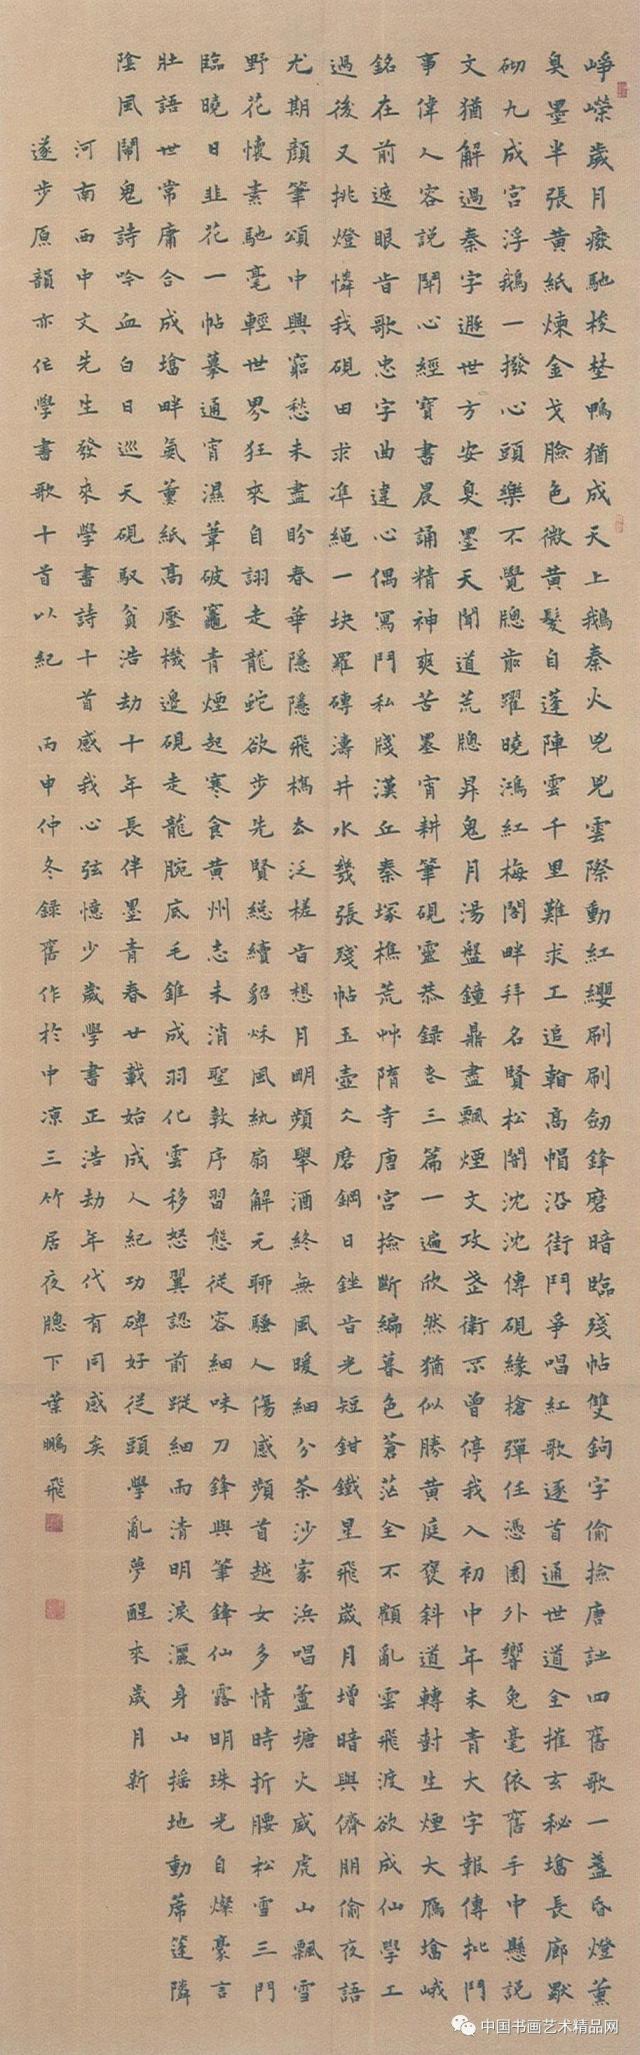 崢嶸歲月癡馳梭埜鴨猶成天上鵝秦火兇兇雲際動紅纓刷刷劒鋒磨暗臨殘帖雙鉤字偷撿唐誌四舊歌一盞昏燈薰
臭墨半張黃紙煉金戈臉色微黃髮自蓬陣雲千里難求工追翰高帽沿街鬥爭唱紅歌逐首通世道全摧玄秘塔長廊默
砌九成宮浮鵝一撥心頭樂不覺牕前躍曉鴻紅梅閣畔拜名賢松閣沈沈傳硯緣槍彈任憑圍外響兔毫依舊手中懸說
文猶解過秦字遯世方安臭墨天聞道荒牕昇鬼月湯盤鐘鼎盡飄煙文攻武衛不曾停我入初中年未青大字報傳批鬥
事偉人容說闡心經寶書晨誦精神爽苦墨宵耕筆硯靈恭錄老三篇一遍欣然猶似勝黃庭褒斜道轉對生煙大雁塔峨
銘在前遮眼昔歌忠字曲違心偶寫鬥私牋漢丘秦塚樵荒艸隋寺唐宮撿斷編暮色蒼茫全不顧亂雲飛渡欲成仙學工
過後又挑燈憐我硯田求準繩一塊羅磚濤井水幾張殘帖玉壺久磨鋼日銼昔光短鉗鐵星飛歲月增暗與儕朋偷夜語
尤期顏筆頌中興窮愁未盡盼春華隱隱飛橋去泛槎昔想月明頻舉酒終無風暖細分茶沙家浜唱蘆塘火威虎山飄雪
野花懷素馳毫輕世界狂來自詡走龍蛇欲步先賢總續貂秌風紈扇解元聊騷人傷感頻首越女多情時折腰松雪三門
臨曉日韭花一帖摹通宵濕葦破竈青煙起寒食黃州志未消聖教序習態從容細味刀鋒與筆鋒仙露明珠光自燦豪言
壯語世常庸合成塔畔氣薰紙高壓機邊硯走龍腕底毛錐成羽化雲移怒翼認前蹤細雨清明淚灑身山搖地動蓆篷隣
陰風鬧鬼詩吟血白日巡天硯馭貧浩劫十年長伴墨青春廿載始成人紀功碑好從頭學亂夢醒來歲月新
河南西中文先生發來學書詩十首感我心弦憶少歲學書正浩劫年代有同感矣
遂步原韻亦作學書歌十首以紀 丙申仲冬錄舊作於中凉三竹居夜牕下葉鵬飛
中国书画艺术精品网